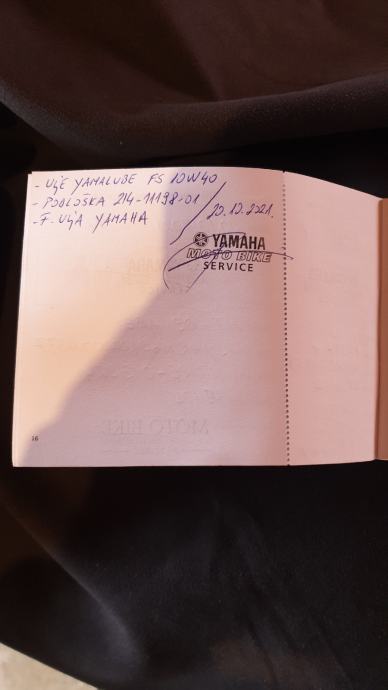 - ULJE YAMALUBE FS 10W40
- PODLOŠKA 214-11198-01
- F. ULJA YAMAHA
20.10.2021.
YAMAHA
MOTO BIKE
SERVICE
16
MOTO BIKE